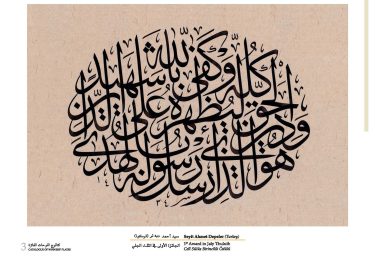 هو الذي أرسل رسوله بالهدى ودين الحق ليظهره على الدين كله وكفى بالله شهيدا
Seyit Ahmet Depeler (Turkey)
سيد أحمد
الجائزة الأولى في الثلث الجلي
1st Award in Jaly Thuluth
Celî Sülüs Birincilik Ödülü
3
كتالوج اللوحات الفائزة
CATALOGUE OF